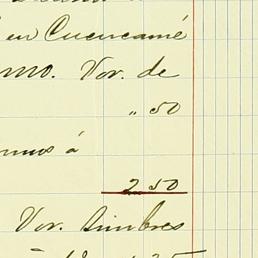 en Cuencamé
mo. Vor. de
„ 50
mos á
2 50
Vor. timbres